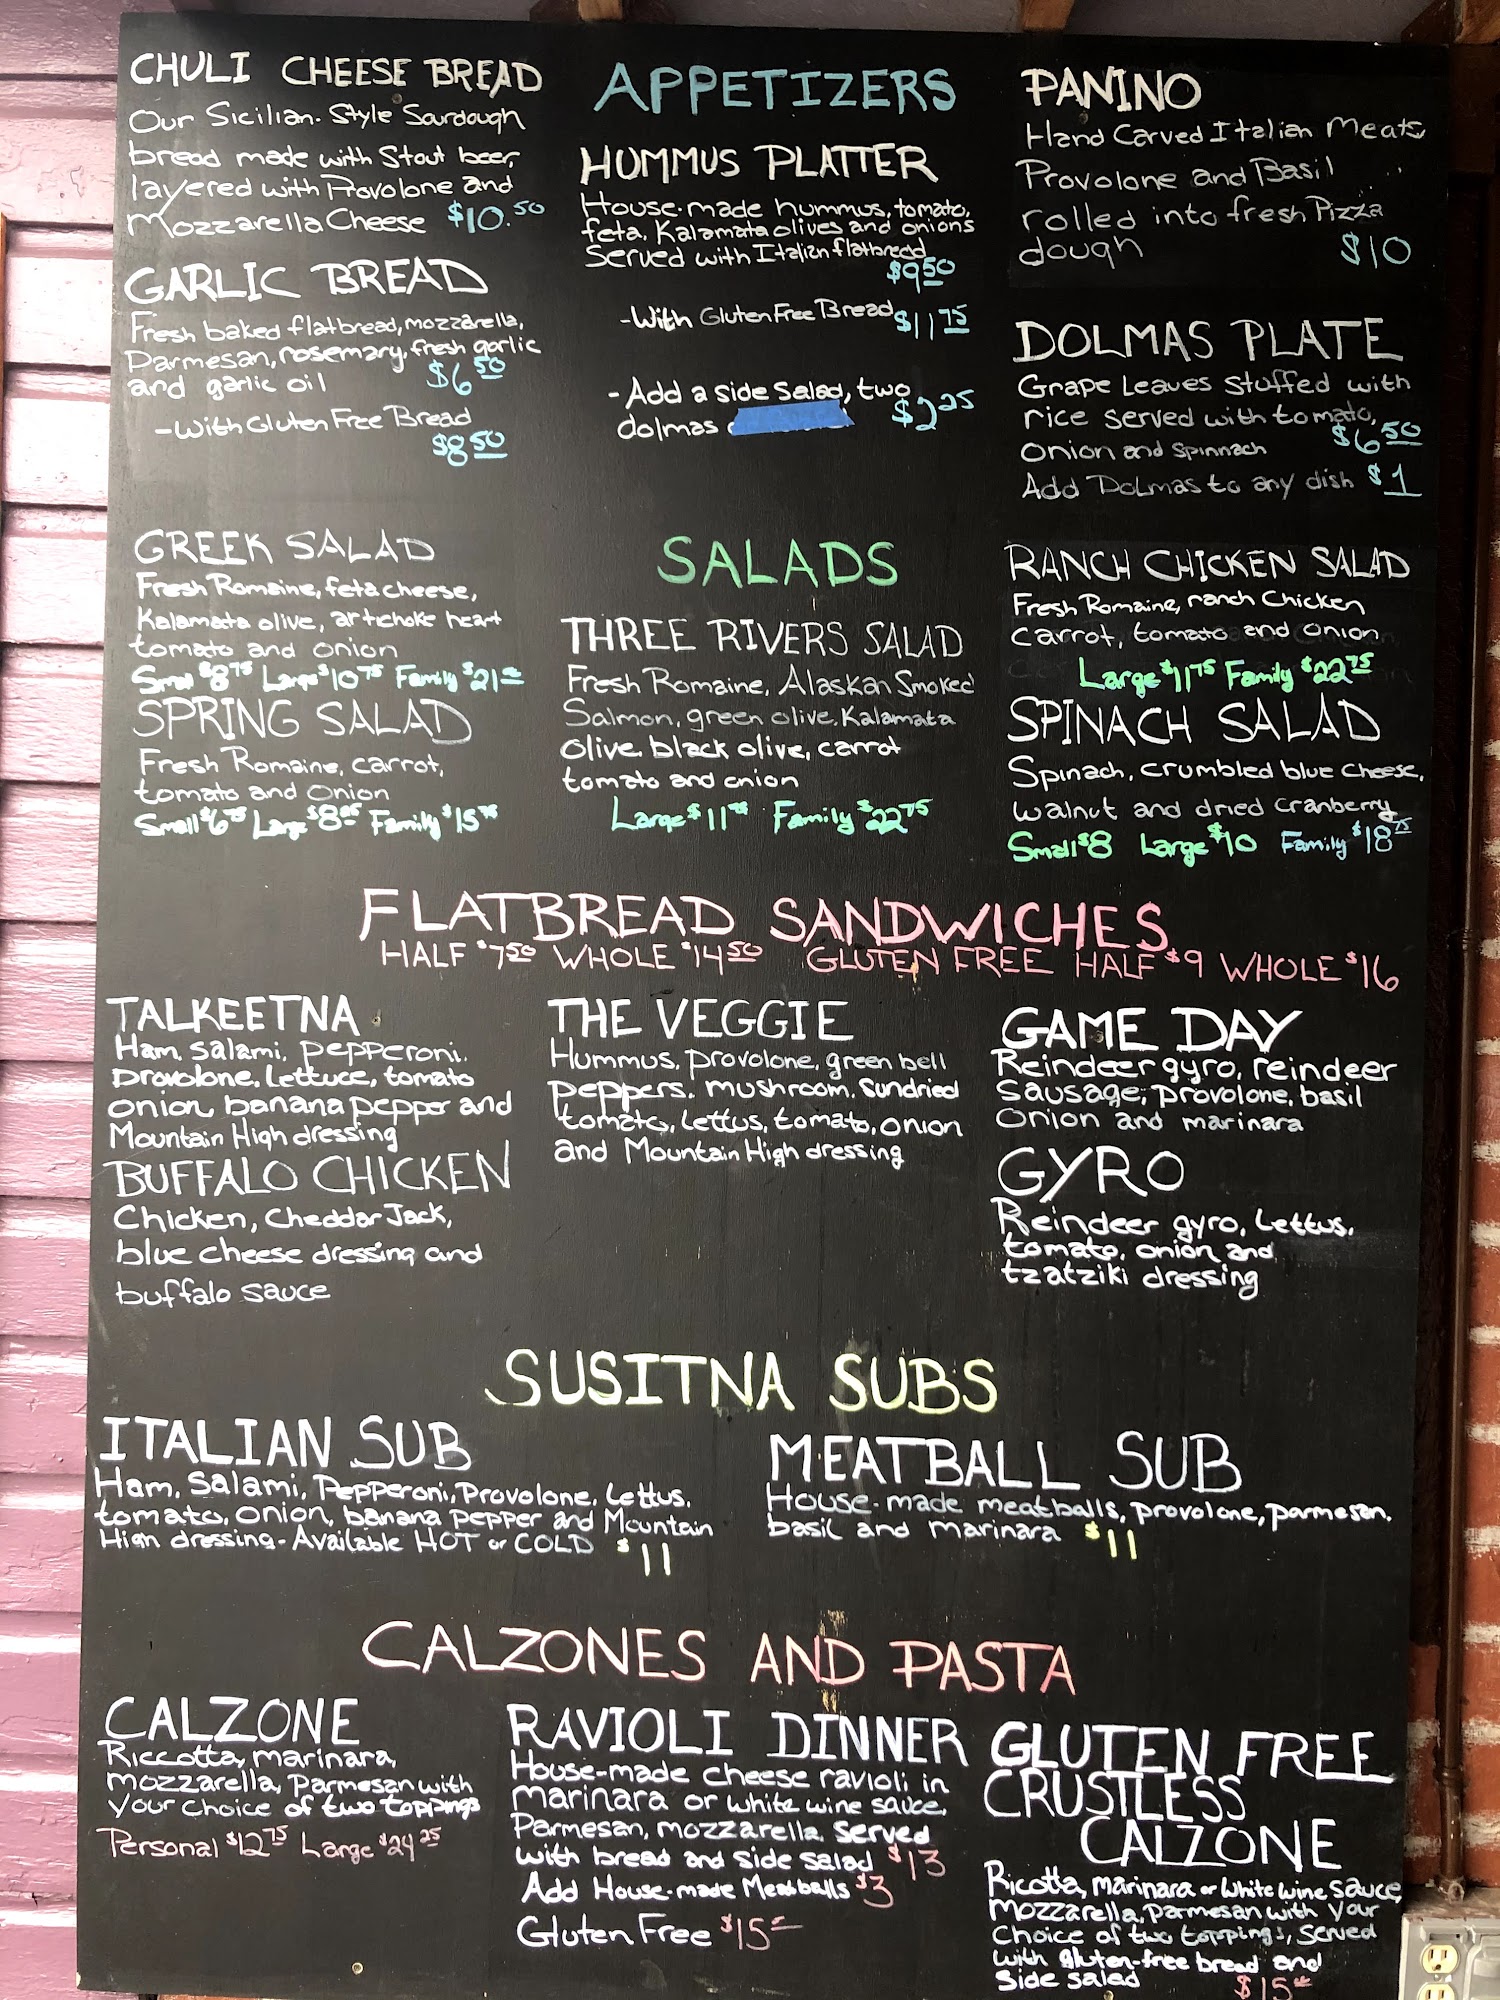 CHULI CHEESE BREAD
Our Sicilian-Style Sourdough
bread made with Stout beer,
layered with Provolone and
Mozzarella Cheese $10.50
GARLIC BREAD
Fresh baked flatbread, mozzarella,
Parmesan, rosemary, fresh garlic
and garlic oil $6.50
-With Gluten Free Bread
$8.50
APPETIZERS
HUMMUS PLATTER
House-made hummus, tomato,
feta, Kalamata olives and onions
Served with Italian flatbread
$9.50
-With Gluten Free Bread $11.75
-Add a side Salad, two
dolmas $2.25
PANINO
Hand Carved Italian Meats
Provolone and Basil
rolled into fresh Pizza
dough $10
DOLMAS PLATE
Grape Leaves Stuffed with
rice served with tomato,
onion and spinnach $6.50
Add Dolmas to any dish $1
GREEK SALAD
Fresh Romaine, feta cheese,
Kalamata olive, artichoke heart
tomato and onion
Small $8.75 Large $10.75 Family $21
SPRING SALAD
Fresh Romaine, carrot,
tomato and onion
Small $6.75 Large Family $15.75
SALADS
THREE RIVERS SALAD
Fresh Romaine, Alaskan Smoked
Salmon, green olive, Kalamata
olive, black olive, carrot
tomato and onion
Large $11.75 Family $22.75
RANCH CHICKEN SALAD
Fresh Romaine, ranch Chicken
carrot, tomato and onion
Large $11.75 Family $22.75
SPINACH SALAD
Spinach, crumbled blue cheese,
walnut and dried cranberry
Small $8 Large $10 Family $18.75
FLATBREAD SANDWICHES
HALF $7.50 WHOLE $14.50 GLUTEN FREE HALF $9 WHOLE $16
TALKEETNA
Ham, salami, pepperoni,
provolone, lettuce, tomato
onion, banana pepper and
Mountain High dressing
BUFFALO CHICKEN
Chicken, Cheddar Jack,
blue cheese dressing and
buffalo sauce
THE VEGGIE
Hummus, provolone, green bell
peppers, mushroom, sundried
tomato, lettus, tomato, onion
and Mountain High dressing
GAME DAY
Reindeer gyro, reindeer
sausage, provolone, basil
onion and marinara
GYRO
Reindeer gyro, lettus,
tomato, onion and
tzatziki dressing
SUSITNA SUBS
ITALIAN SUB
Ham, Salami, Pepperoni, Provolone, lettus,
tomato, onion, banana pepper and Mountain
High dressing - Available HOT or COLD $11
MEATBALL SUB
House-made meatballs, provolone, parmesan,
basil and marinara $11
CALZONES AND PASTA
CALZONE
Riccotta, marinara,
mozzarella, parmesan with
your choice of two toppings
Personal $12.75 Large $24.25
RAVIOLI DINNER
House-made cheese ravioli in
marinara or white wine sauce,
Parmesan, mozzarella, served
with bread and side salad $13
Add House-made Meatballs $3
Gluten Free $15
GLUTEN FREE
CRUSTLESS
CALZONE
Ricotta, marinara or white wine sauce,
mozzarella, parmesan with your
choice of two toppings, served
with gluten-free bread and
side salad $15